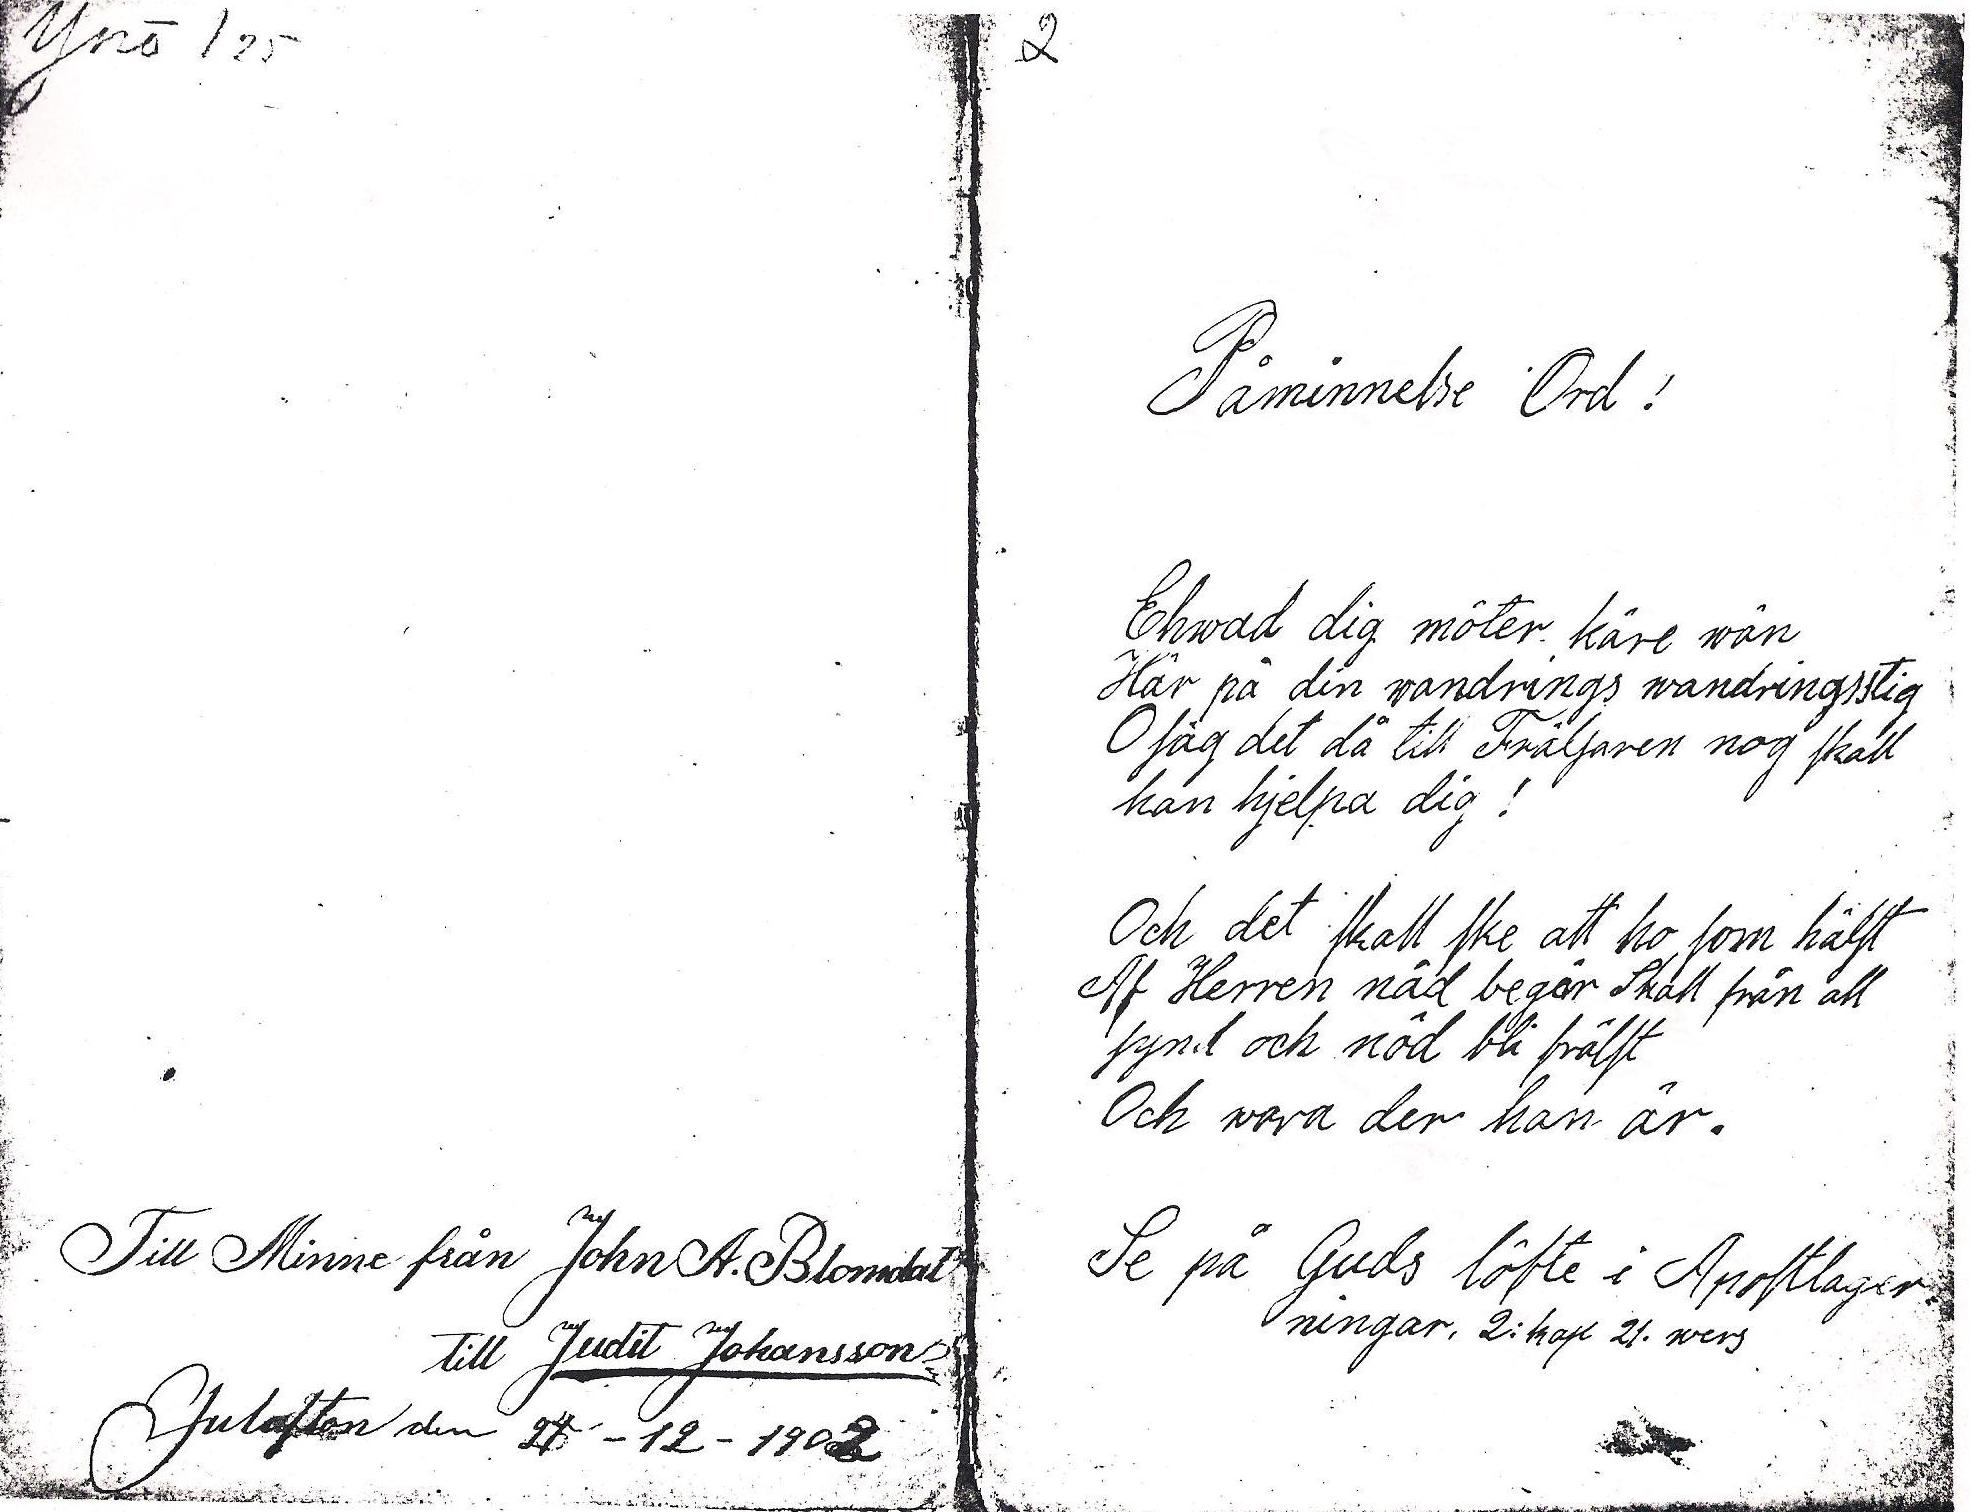 Ynö /25
Till Minne från John A. Blomdal
till Judit Johansson
Julafton den 24 - 12 - 1902
2
Påminnelse Ord!
Ehwad dig möter käre wän
Här på din wandrings wandringsstig
O säg det då till Frälsaren nog skall
han hjelpa dig!
Och det skall ske att ho som hälst
Af Herren nåd begär Skall från all
synd och nöd bli frälst
Och wara der han är.
Se på Guds löfte i Apostlager-
ningar, 2: kap 21. wers